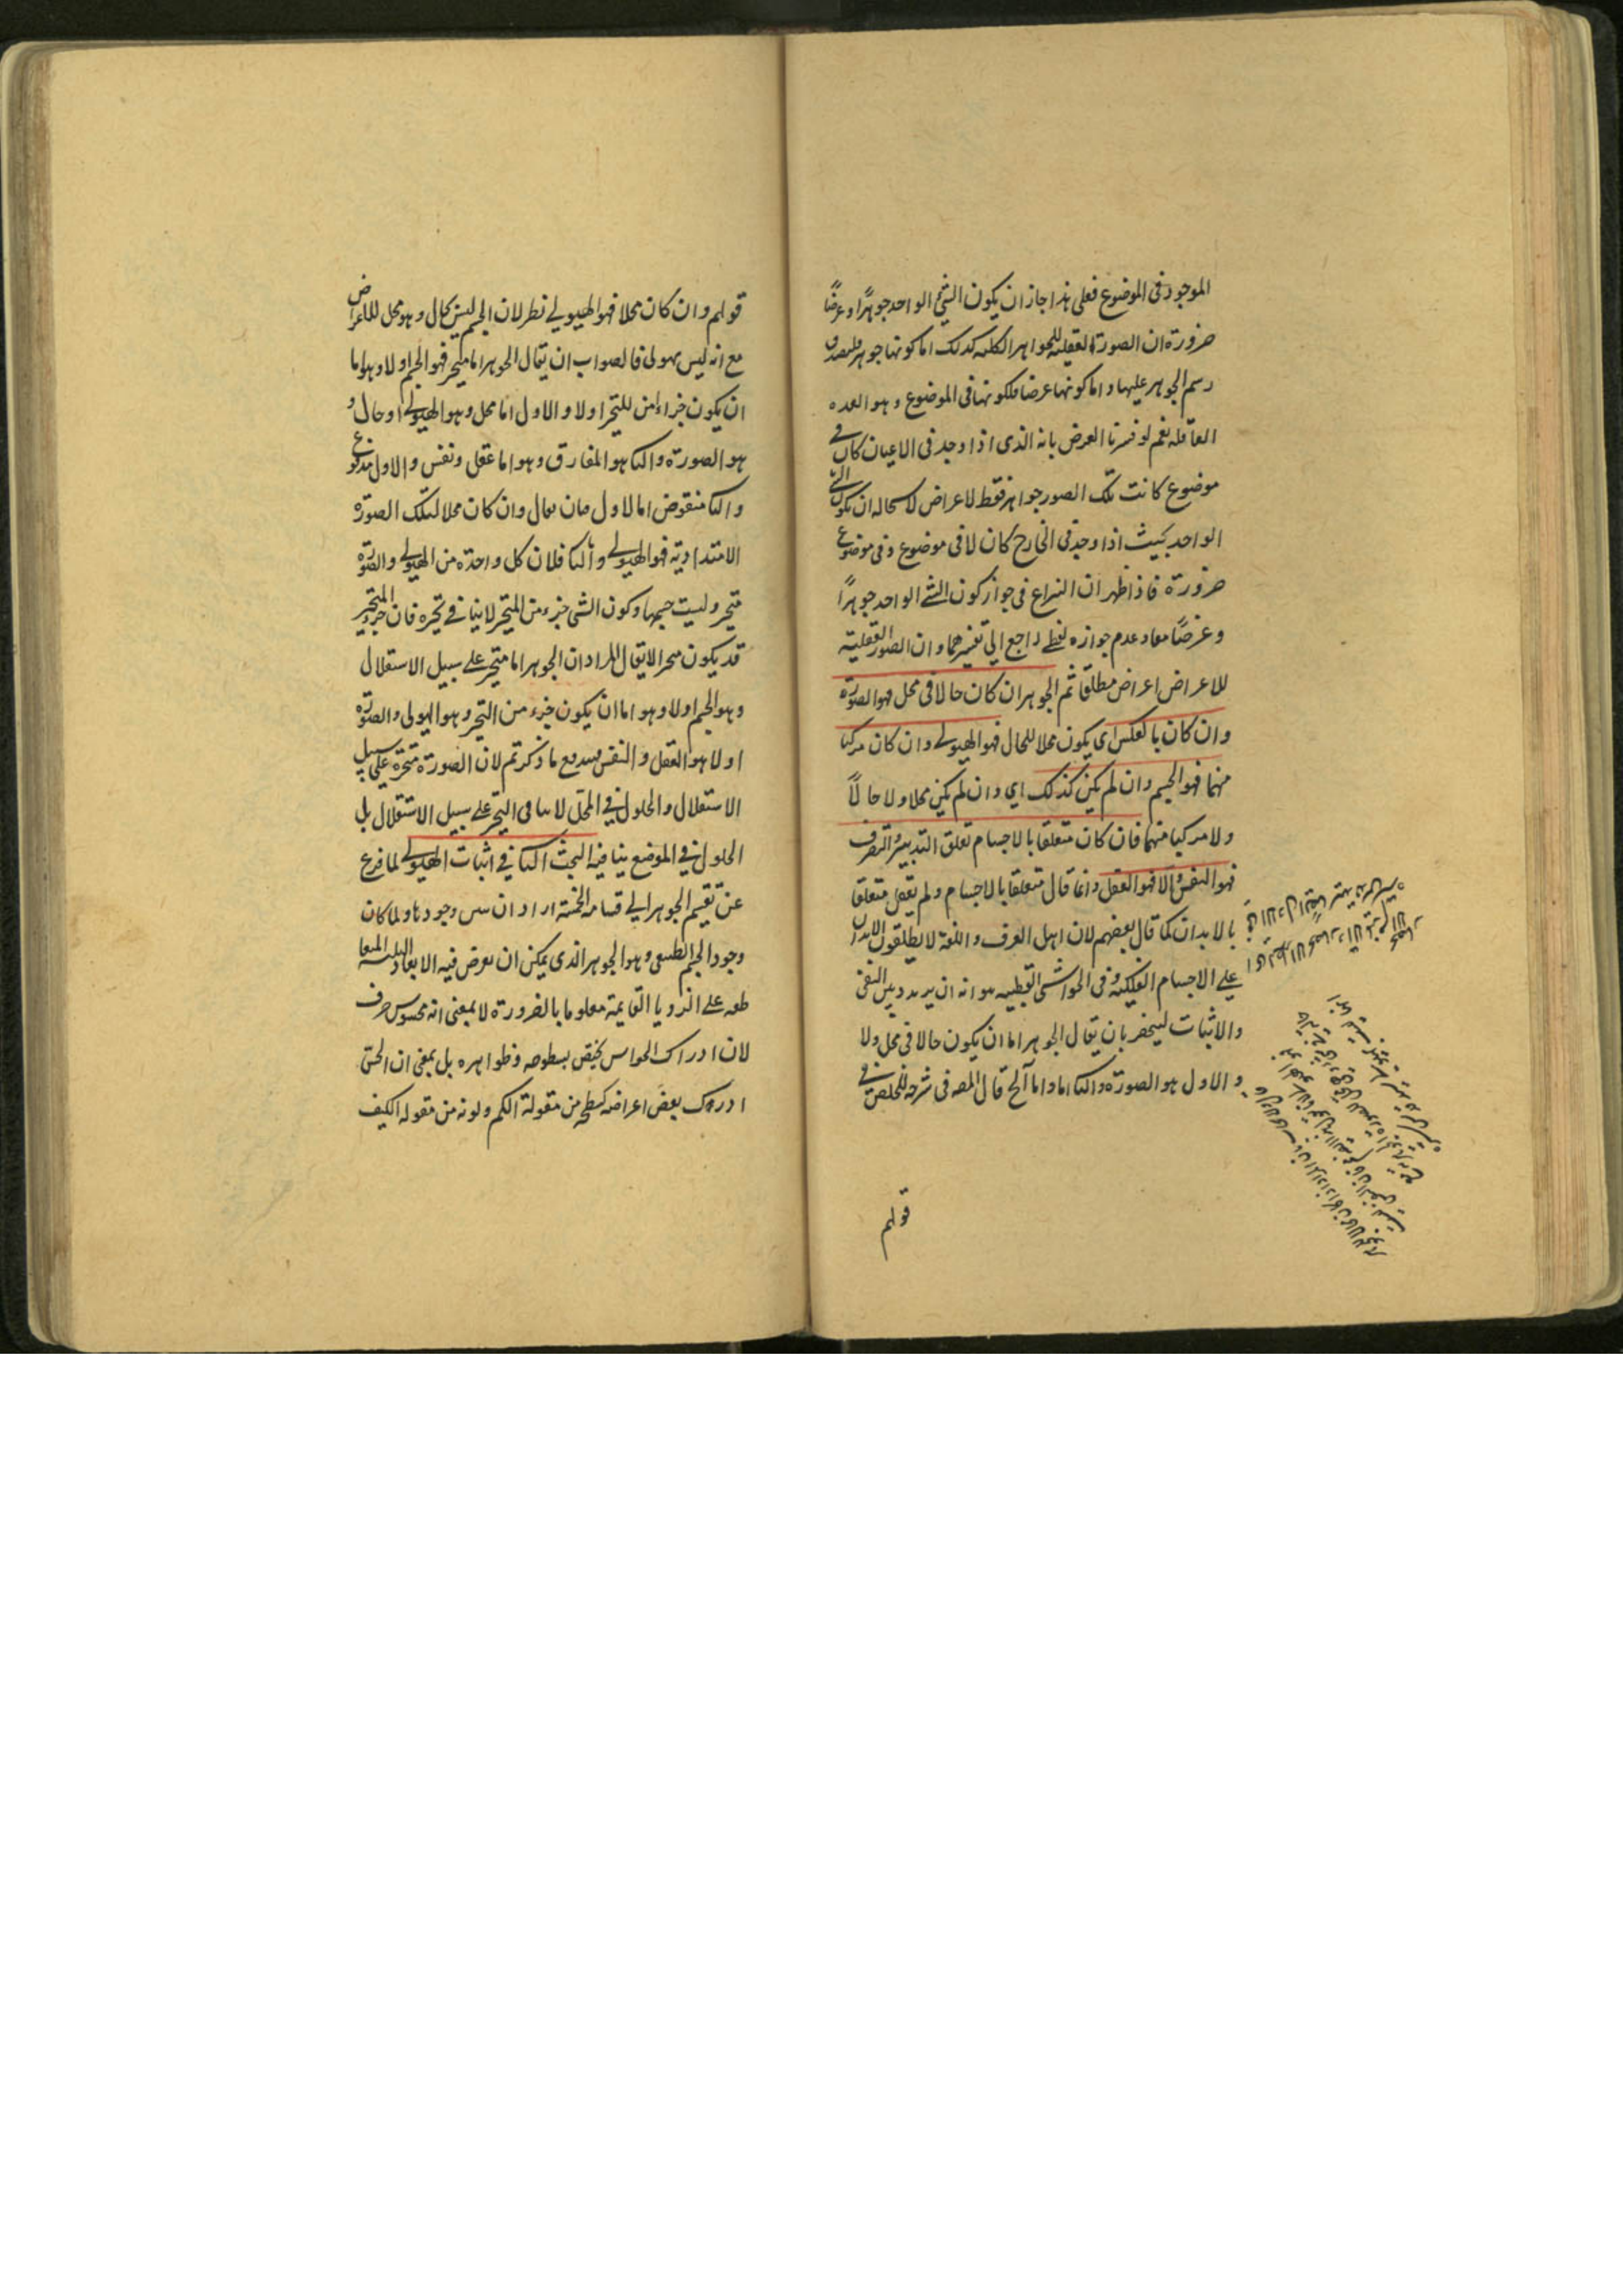 الموجود فى الموضوع فعلى هذا جاز ان يكون الشئ الواحد جوهرًا وعرضًا
ضرورة ان الصورة العقلية للجواهر الكلية كذلك اما كونها جوهر فلصدق
رسم الجوهر عليها واما كونها عرضا فلكونها فى الموضوع وهو القوة
العاقلة نعم لو فسرنا العرض بانه الذى اذا وجد فى الاعيان كان فى
موضوع كانت تلك الصور جواهر فقط لا عراض لاستحالة ان يكون الشئ
الواحد بحيث اذا وجد فى الخارج كان لا فى موضوع وفى موضوع
ضرورة فاذا ظهر ان النزاع فى جواز كون الشئ الواحد جوهرًا
وعرضًا معا وعدم جوازه لفظى راجع الى تفسيرهما وان الصور العقلية
للاعراض اعراض مطلقا ثم الجوهر ان كان حالا فى محل فهو الصورة
وان كان بالعكس اى يكون محلا للحال فهو الهيولى وان كان مركبا
منهما فهو الجسم وان لم يكن كذلك اى وان لم يكن محلا ولا حالًا
ولا مركبا منهما فان كان متعلقا بالاجسام تعلق التدبير والتصرف
فهو النفس والا فهو العقل وانما قال متعلقا بالاجسام ولم يقل متعلقا
بالابدان كما قال بعضهم لان اهل العرف واللغة لا يطلقون الابدان
على الاجسام الفلكية وفى الحواشى القطبيه هو انه ان يردد بين النفى
والاثبات لينحصر بان يقال الجوهر اما ان يكون حالا فى محل ولا
والاول هو الصورة والثا اما واما آلخ قال المصه فى شرحه للملخص فى
قولم
قولهم وان كان محلا فهو الهيولى نظر لان الجسم ليس بحال وهو محل للاعراض
مع انه ليس بهولى فالصواب ان يقال الجوهر اما متحيز فهو الجسم اولا وهو اما
ان يكون جزءا من المتحيز اولا والاول اما محل وهو الهيولى او حال و
هو الصورة والثا هو المفارق وهو اما عقل ونفس والاول مدفوع
والثا منقوض اما الاول فبان يقال وان كان محلا لتلك الصورة
الامتدادية فهو الهيولى والثا فلان كل واحدة من الهيولى والصورة
متحيز وليست جسما وكون الشئ جزء من المتحيز لا ينافى تحيزه فان جزء المتحيز
قد يكون متحيزا لا يقال المراد ان الجوهر اما متحيز على سبيل الاستقلال
وهو الجسم اولا وهو اما ان يكون جزء من المتحيز وهو الهيولى والصورة
اولا هو العقل والنفس فيندفع ما ذكرتم لان الصورة متحيزة على سبيل
الاستقلال والحلول فى المحل لا ينافى التحيز على سبيل الاستقلال بل
الحلول فى الموضع ينافيه البحث الثا فى اثبات الهيولى لما فرغ
عن تقسيم الجوهر الى اقسامه الخمسة اراد ان يبين وجودها ولما كان
وجود الجسم الطبيعى وهو الجوهر الذى يمكن ان يعرض فيه الابعاد الثلثه المتقا
طعه على الزوايا القايمة معلوما بالضرورة لا بمعنى انه محسوس صرف
لان ادراك الحواس يختص بسطوحه وظواهره بل بمعنى ان الحس
ادرك بعض اعراضه كسطحه من مقولة الكم ولونه من مقوله الكيف